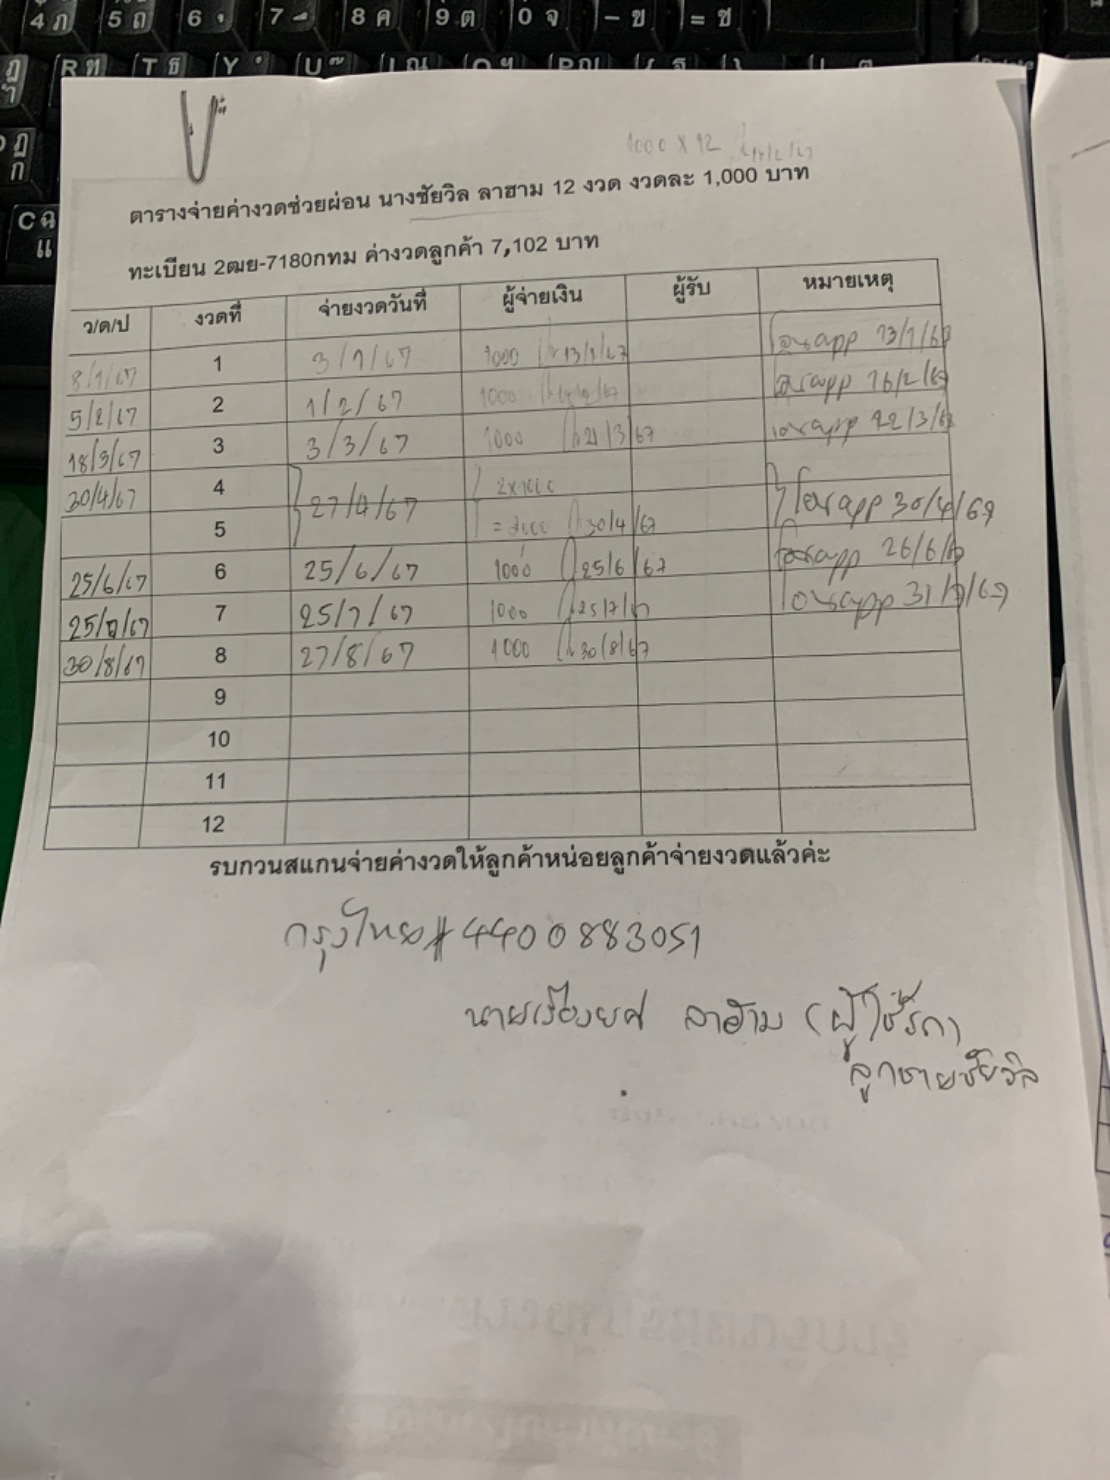 4ภ 5ถ 6ุ 7ึ 8ค 9ต 0จ -ข =ช
Rพ Tธ Yั
Cฉ
แ
1000 x 12
ตารางจ่ายค่างวดช่วยผ่อน นางชัยวิล ลาฮาม 12 งวด งวดละ 1,000 บาท
ทะเบียน 2ฒย-7180กทม ค่างวดลูกค้า 7,102 บาท
ว/ด/ป งวดที่ จ่ายงวดวันที่ ผู้จ่ายเงิน ผู้รับ หมายเหตุ
8/1/67 1 3/1/67 1000 13/1/67 โอนapp 13/1/67
5/2/67 2 1/2/67 1000 โอนapp 16/2/67
18/3/67 3 3/3/67 1000 21/3/67 โอนapp 22/3/67
30/4/67 4 27/4/67 2x1000 โอนapp 30/4/67
5 =2000 30/4/67
25/6/67 6 25/6/67 1000 25/6/67 โอนapp 26/6/67
25/7/67 7 25/7/67 1000 25/7/67 โอนapp 31/7/67
30/8/67 8 27/8/67 1000 30/8/67
9
10
11
12
รบกวนสแกนจ่ายค่างวดให้ลูกค้าหน่อยลูกค้าจ่ายงวดแล้วค่ะ
กรุงไทย# 4400883051
นายเรืองยศ ลาฮาม (ผู้ใช้รถ)
ลูกชายชัยวิล